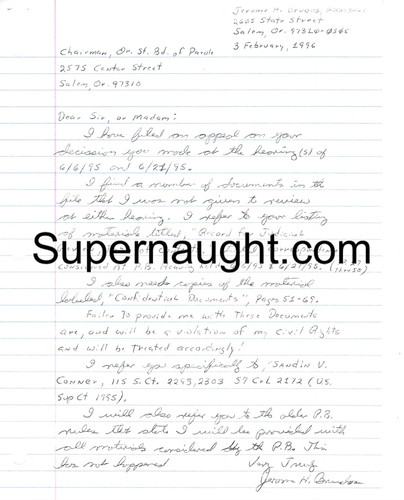 Jerome H.
2605 State Street
Salem, Or. 97310-0505
3 February, 1996
Chairman, Or. St. Bd. of Parole
2575 Center Street
Salem, Or. 97310
Dear Sir, or Madam:
I have filed an appeal on your
decission you made at the hearing(s) of
6/6/95 and 6/21/95.
I find a number of documents in the
file that I was not given to review
at either hearing. I refer to your listing
of materials titled, "Record for Judicial
Supernaught.com
Considered At P.B. Hearing
I also need copies of the material
labeled, "Confidential Documents", Pages 51-65.
Failer To provide me with These Documents
are, and will be a violation of my Civil Rights
and will be Treated accordingly!
I refer you specifically to, Sandin V.
Conner, 115 S. Ct. 2293, 2303 57 CrL 2172 (U.S.
Sup Ct 1995).
I will also refer you to the older P.B.
rules that state I will be provided with
all materials considered by the P.B. This
has not happened
Very Truly
Jerome H. Brudos